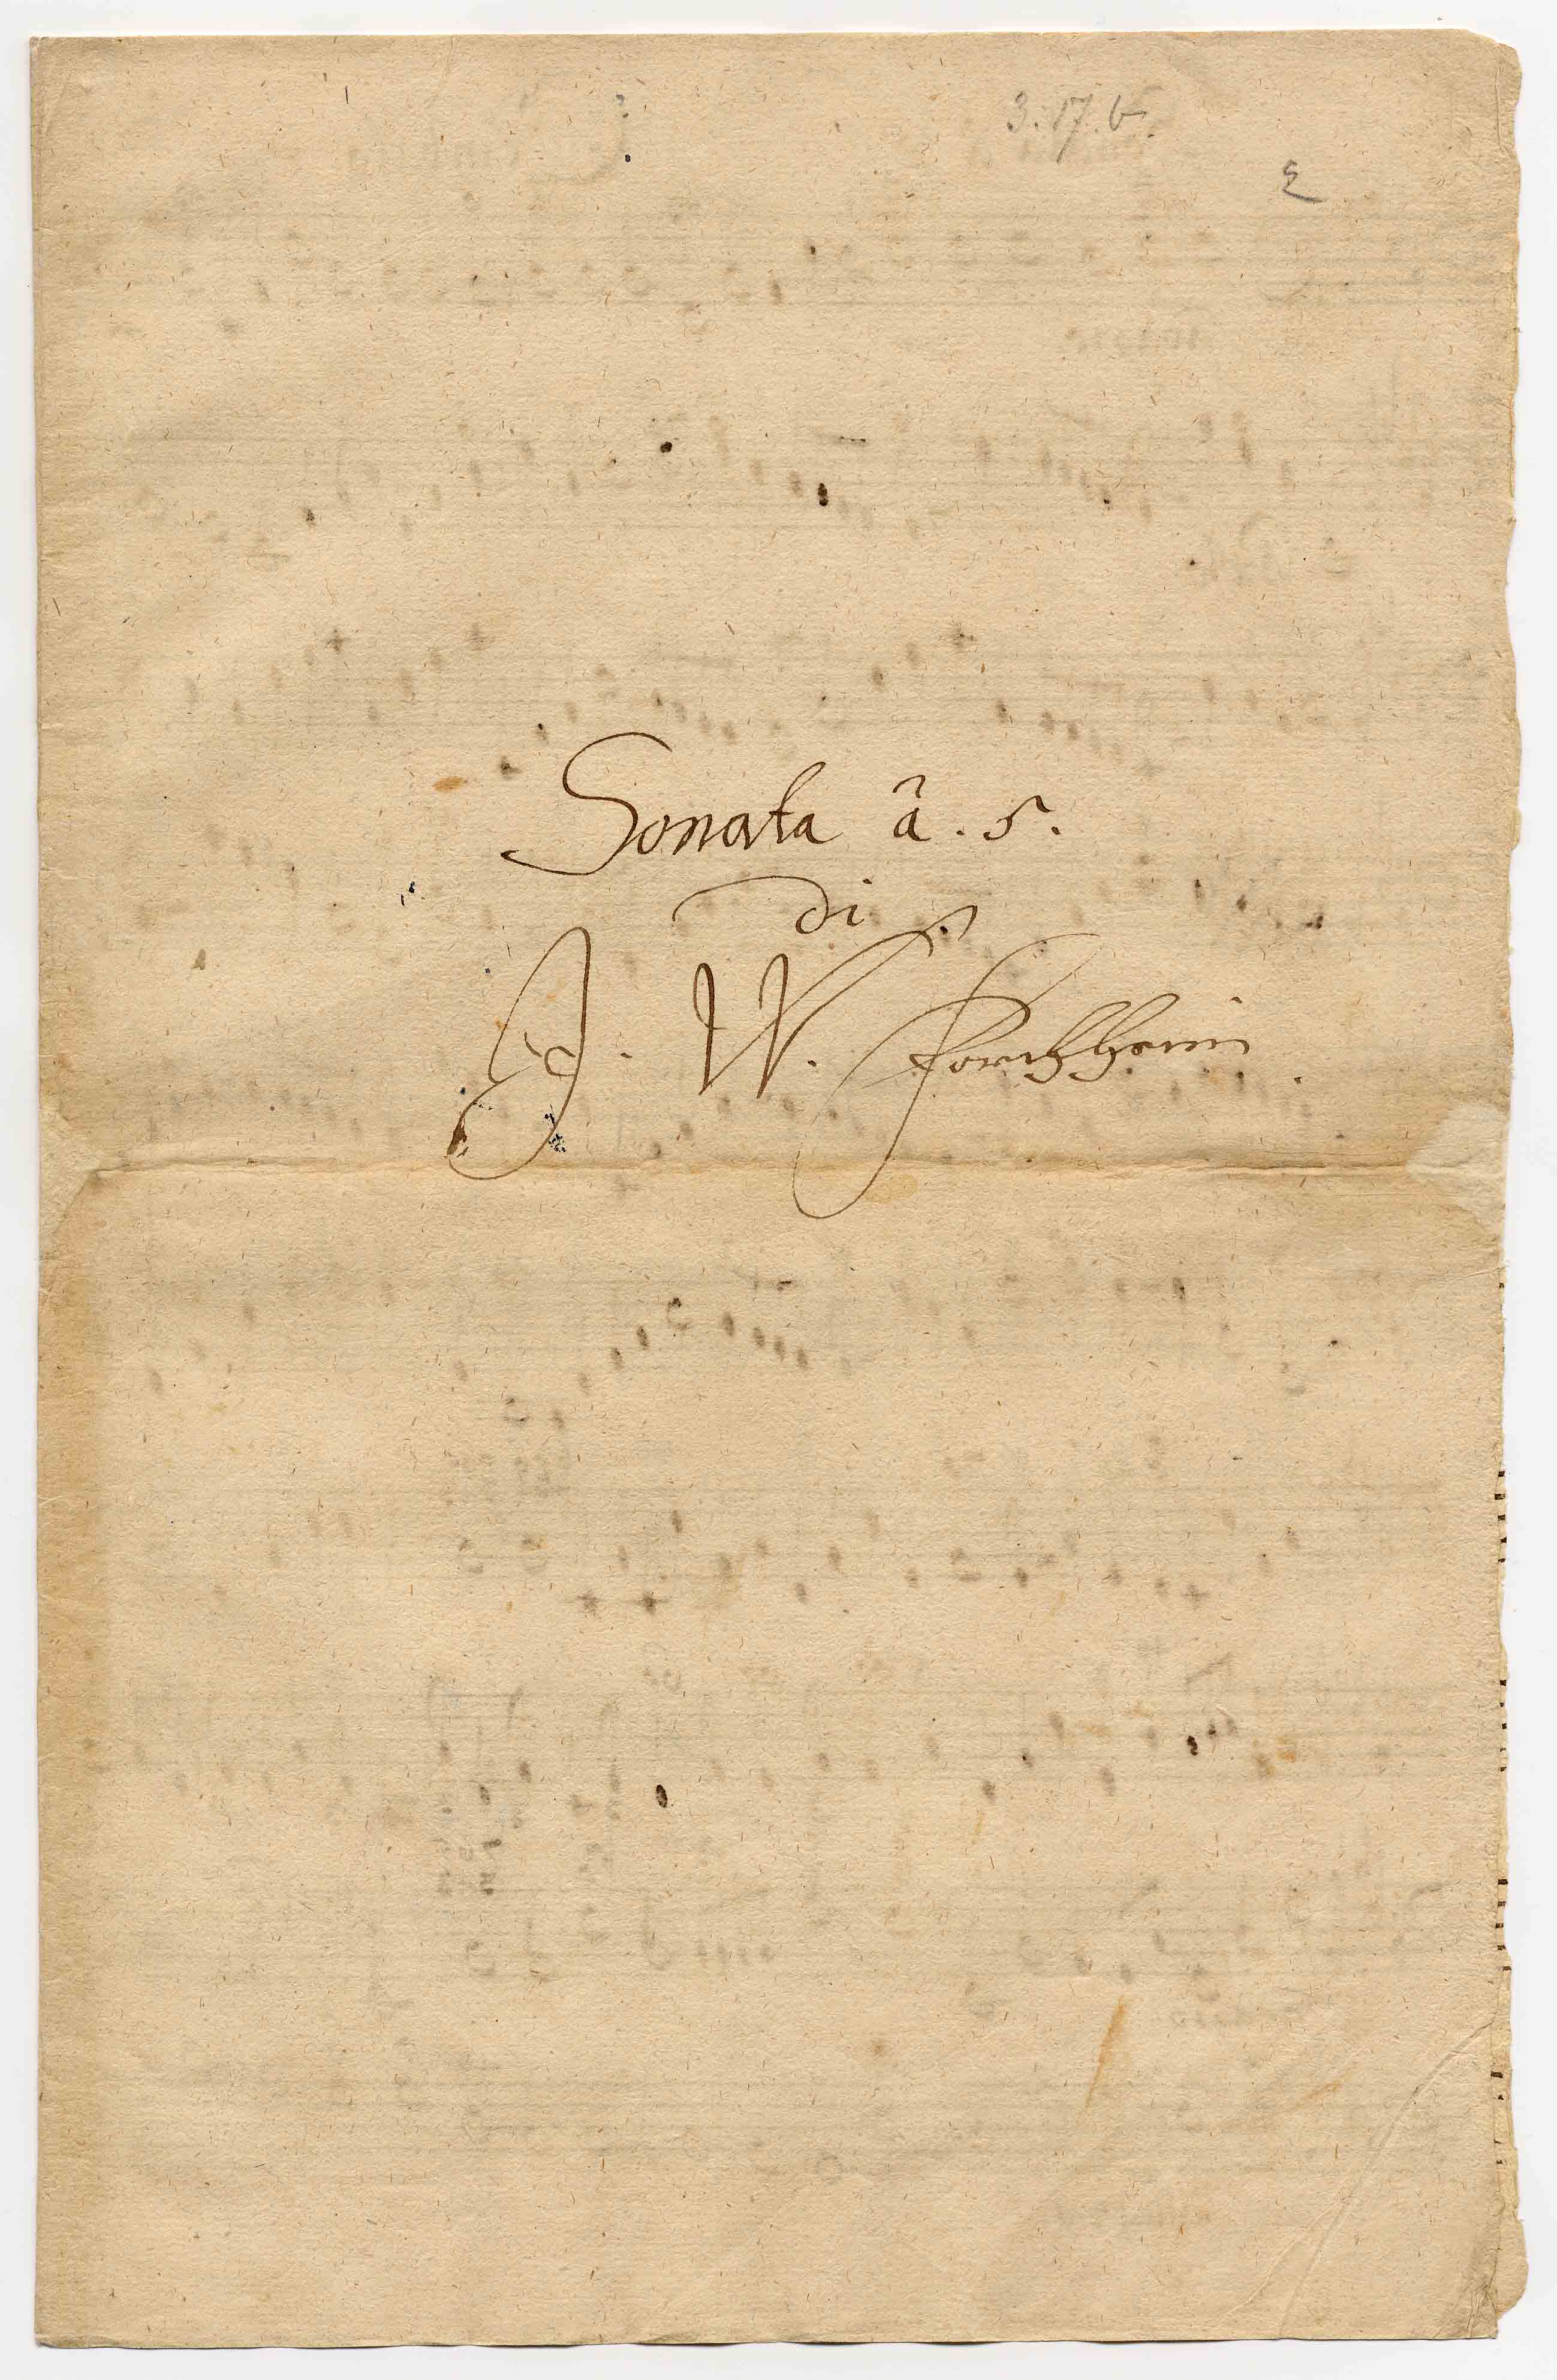 3. 17. b.
Sonata â. 5.
di
J. W. Forchheim